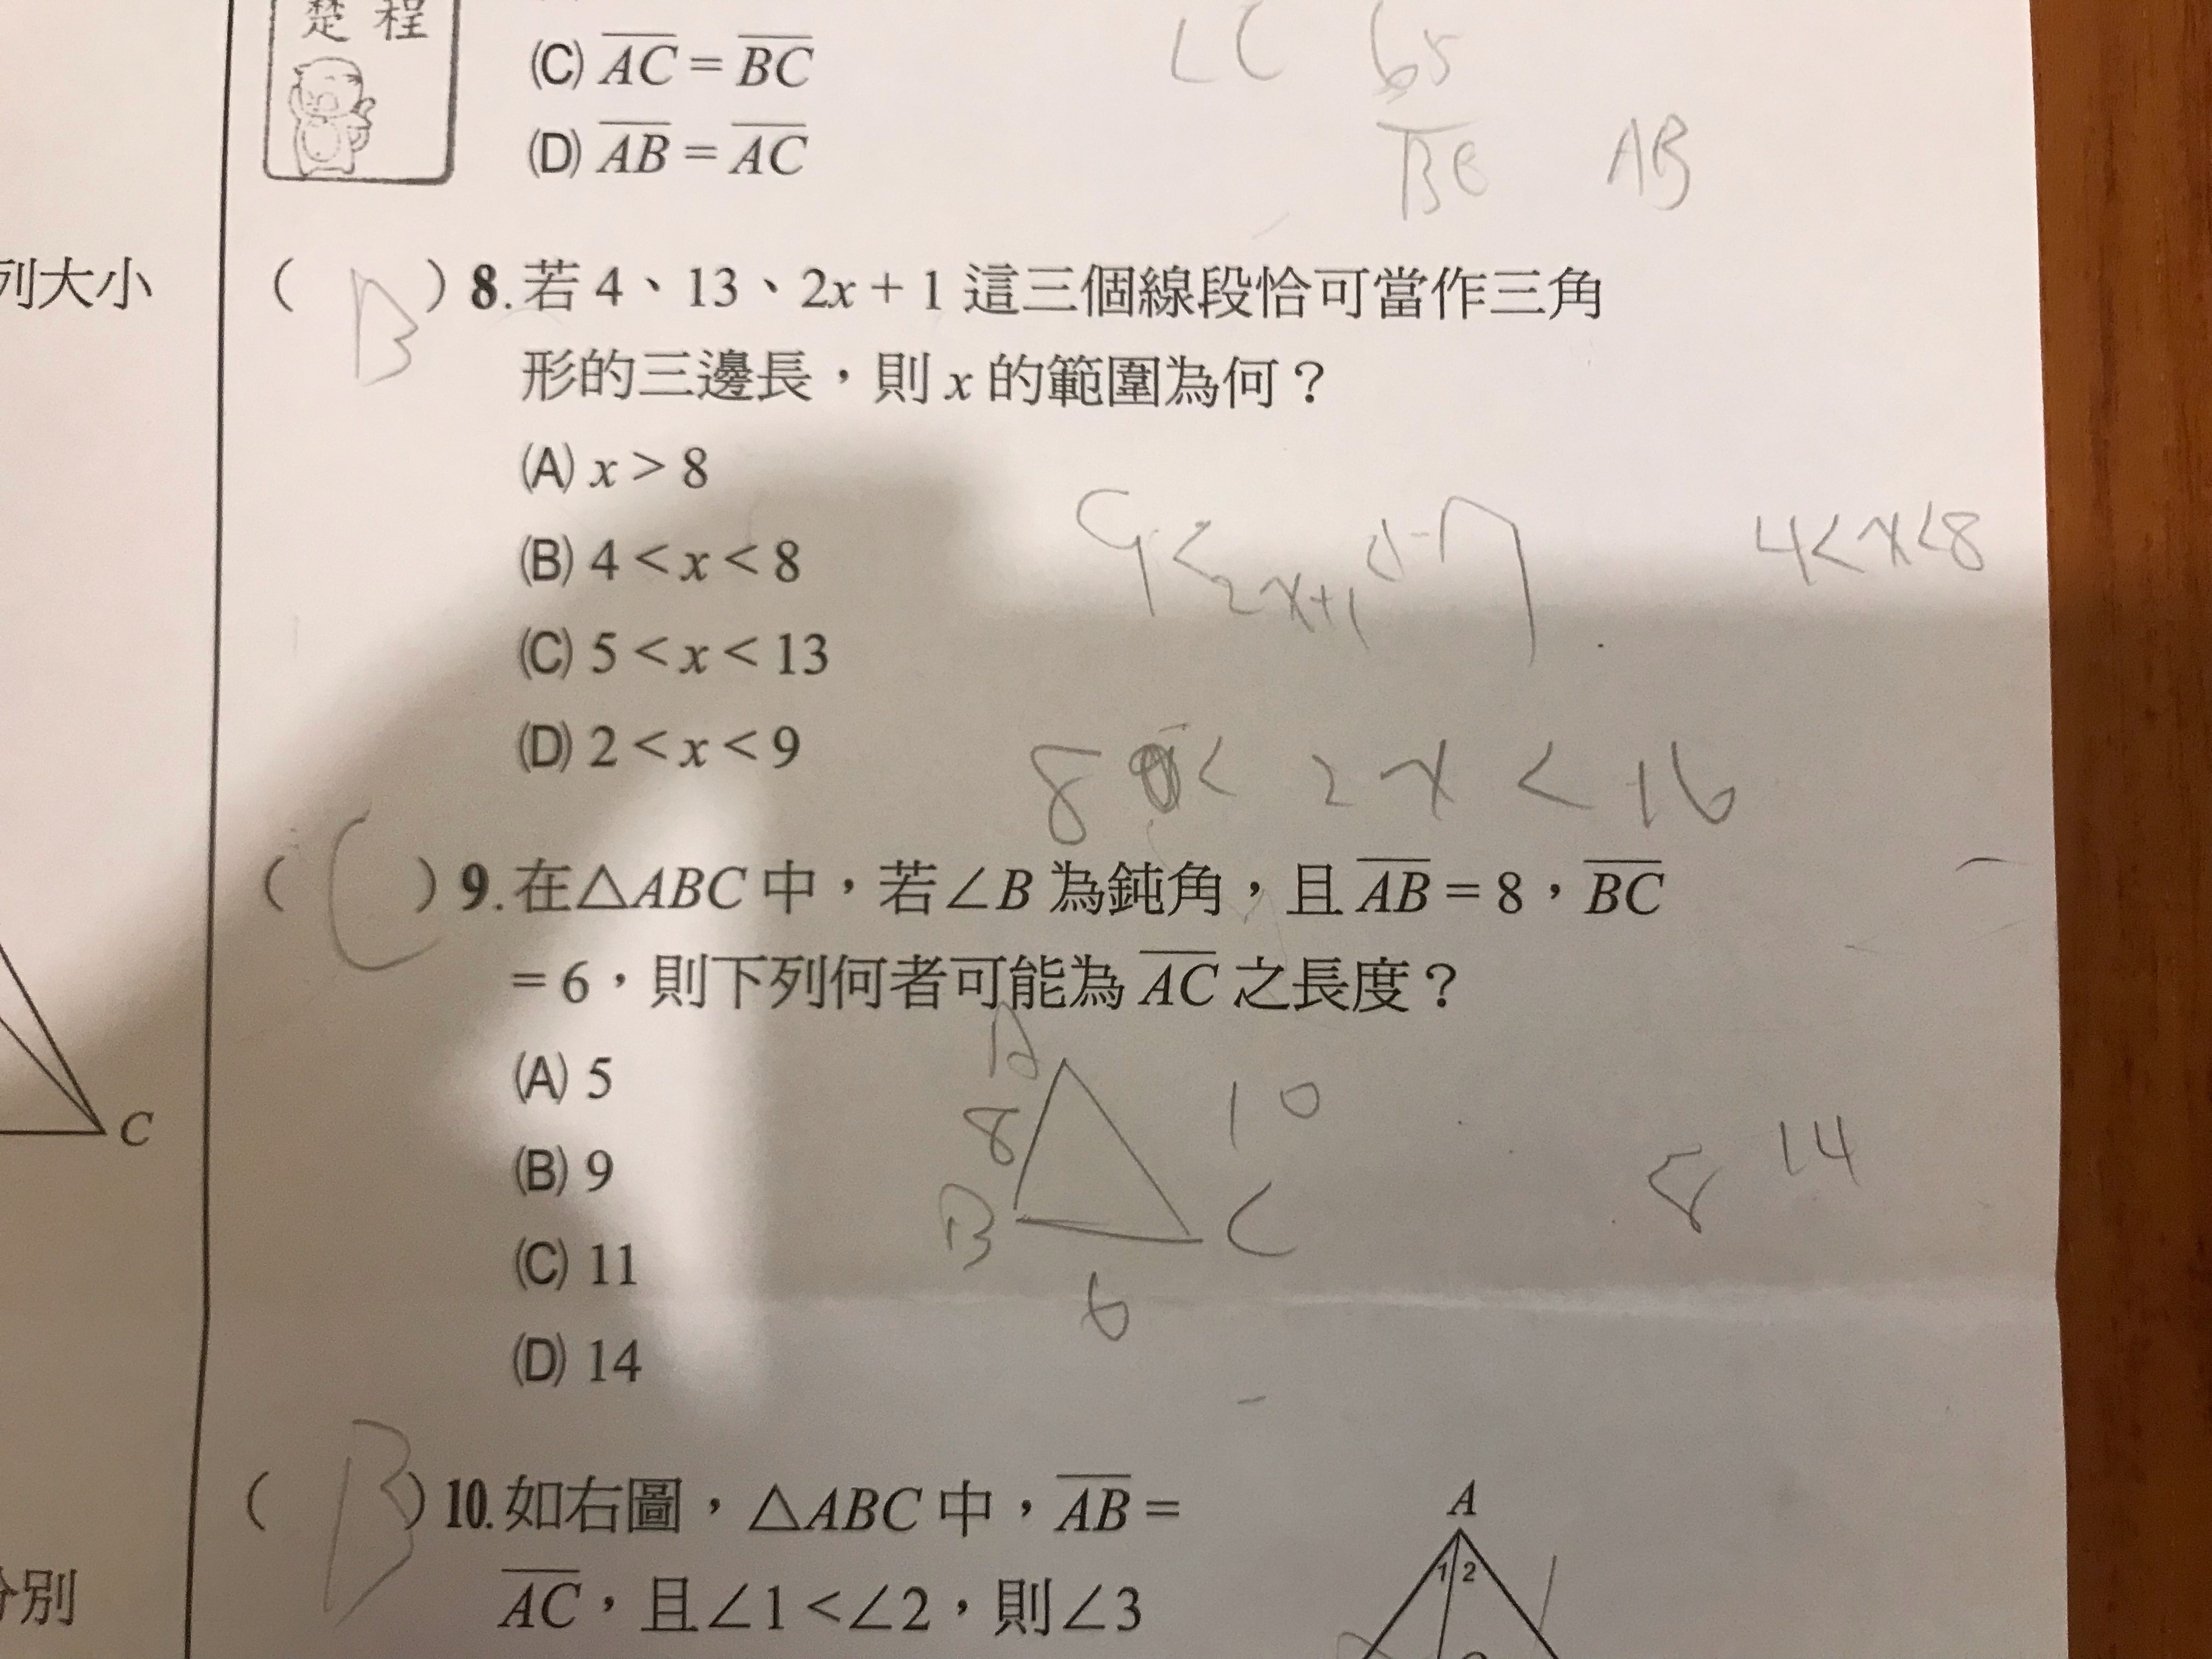 楚 程
(C) AC = BC
(D) AB = AC
∠C 65
BC AB
列大小
( B ) 8. 若 4、13、2x + 1 這三個線段恰可當作三角
形的三邊長，則 x 的範圍為何？
(A) x > 8
(B) 4 < x < 8
(C) 5 < x < 13
(D) 2 < x < 9
9 < 2x+1 < 17
4<x<8
8 < 2x < 16
( C ) 9. 在△ABC 中，若∠B 為鈍角，且 AB = 8，BC
= 6，則下列何者可能為 AC 之長度？
(A) 5
(B) 9
(C) 11
(D) 14
A
8
10
B
C
6
14
C
( B ) 10. 如右圖，△ABC 中，AB =
AC，且∠1 <∠2，則∠3
A
1 2
分別